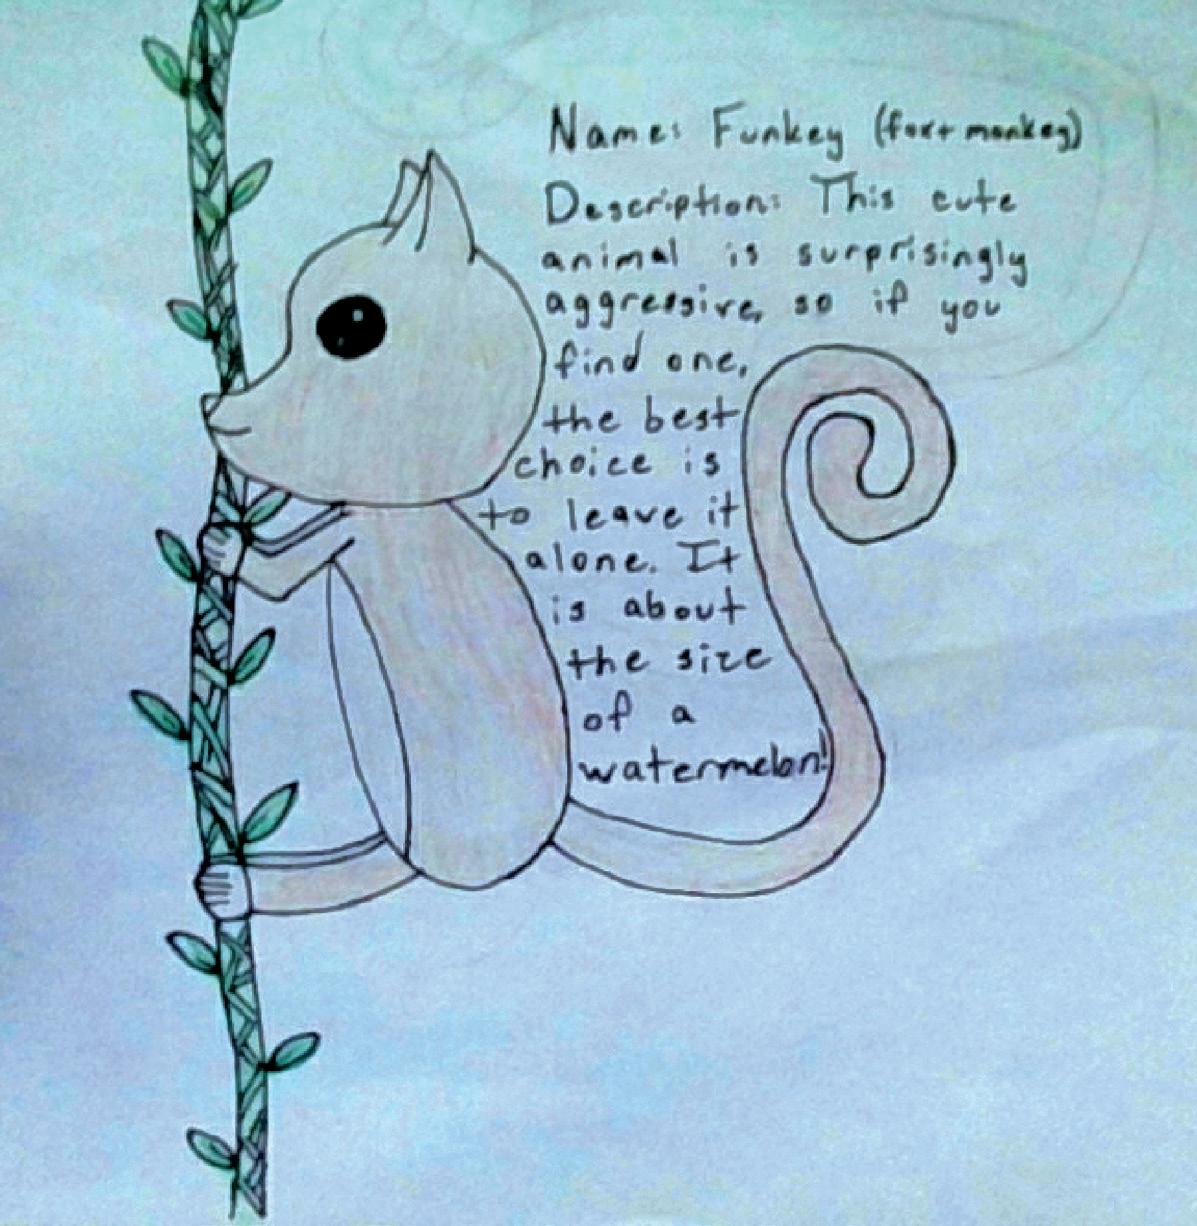 Name: Funkey (fox + monkey)
Description: This cute
animal is surprisingly
aggressive, so if you
find one,
the best
choice is
to leave it
alone. It
is about
the size
of a
watermelon!